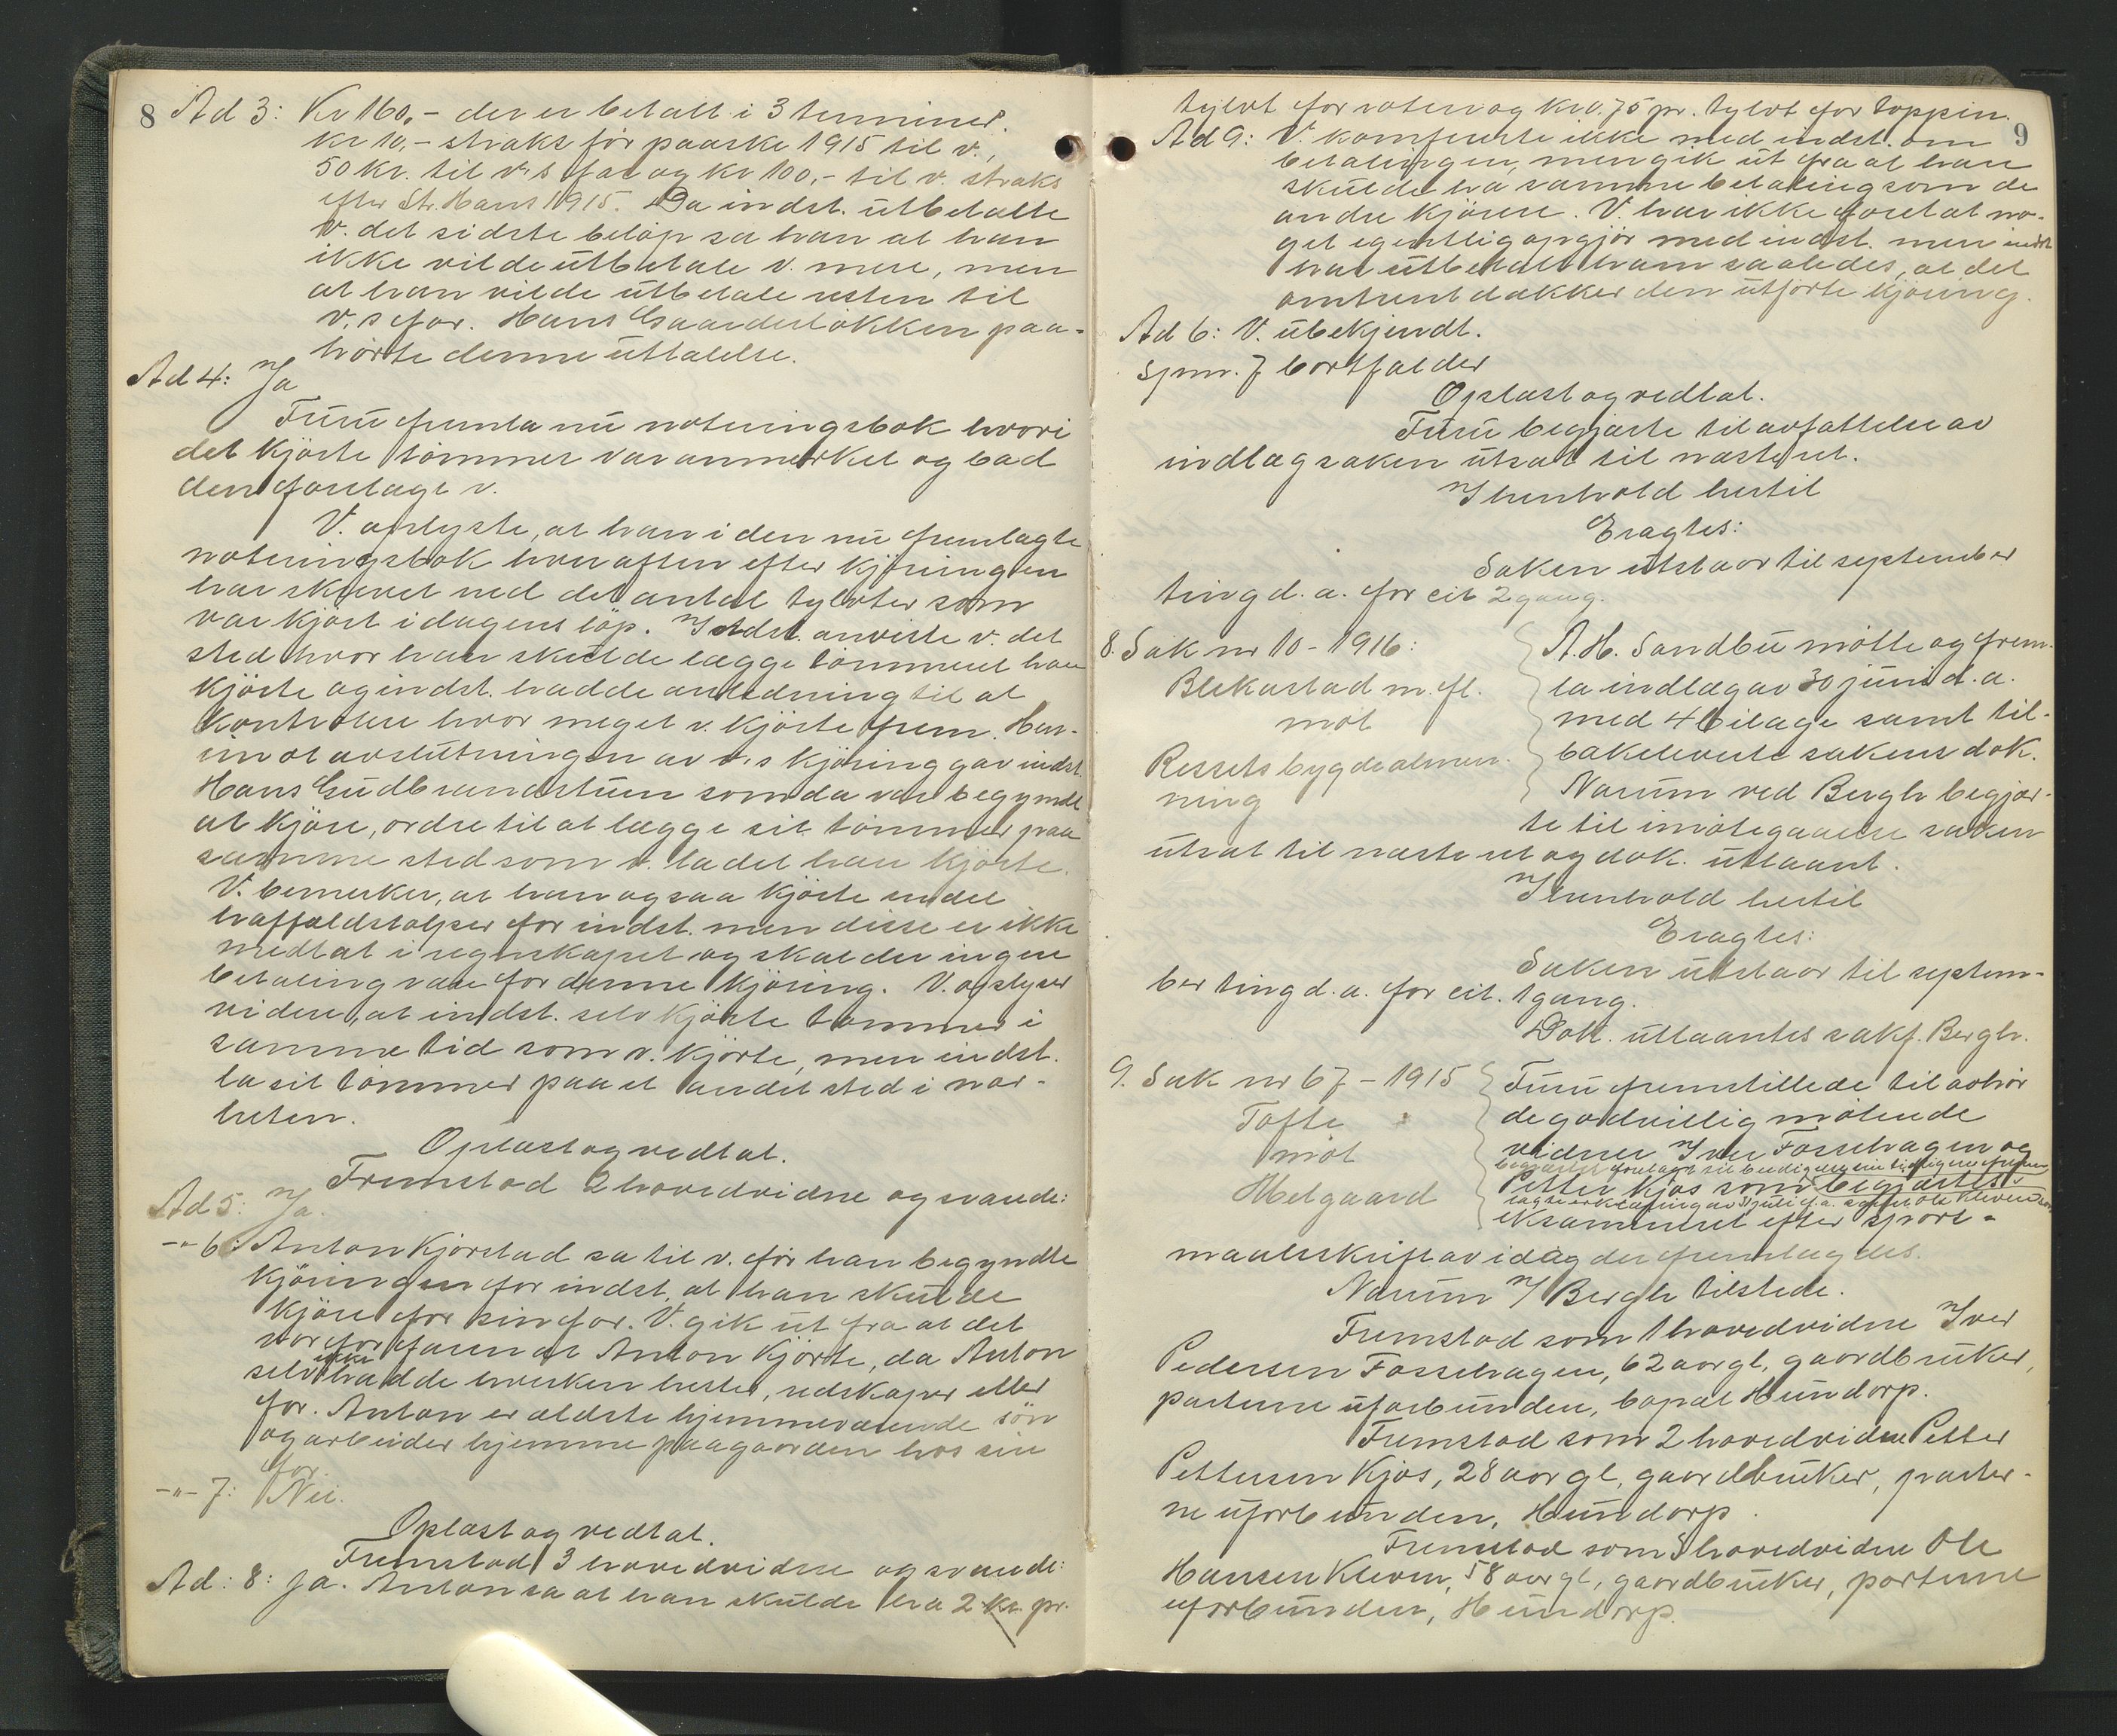 8 Ad 3: Kr 160,- der er betalt i 3 terminer.
kr 10,- straks før paaske 1915 til v.,
50 kr. til v.s far og kr 100,- til v. straks
efter St. Hans 1915. Da indst. utbetalte
v. det sidste beløp sa han at han
ikke vilde utbetale v. mere, men
at han vilde utbetale resten til
v.s far. Hans Gaarderløkken paa-
hørte denne uttalelse.
Ad 4: Ja
Furu fremla nu noteringsbok hvori
det kjørte tømmer var anmerket og bad
den forelagt v.
V. oplyste, at han i den nu fremlagte
noteringsbok hver aften efter kjøringen
har skrevet ned det antal tylvter som
var kjørt i dagens løp. Indst. anviste v. det
sted hvor han skulde lægge tømmeret han
kjørte og indst. hadde anledning til at
kontrolere hvor meget v. kjørte frem. Hen-
imot avslutningen av v.s kjøring gav indst.
Hans Gudbrandstuen som da var begyndt
at kjøre, ordre til at lægge sit tømmer paa
samme sted som v. la det han kjørte.
V. bemerker, at han ogsaa kjørte endel
i regnskapet og skal der ingen
betaling være for denne kjøring. V. oplyser
videre, at indst. selv kjørte tømmer i
samme tid som v. kjørte, men indst.
la sit tømmer paa et andet sted i nær-
heten.
Oplæst og vedtat.
Fremstod 2 hovedvidne og svarede:
Ad 5: Ja.
-"- 6: Anton Kjørstad sa til v. før han begyndte
kjøringen for indst. at han skulde
kjøre for sin far. V. gik ut fra at det
var for faren at Anton kjørte, da Anton
selv ikke hadde hverken hester, redskaper eller
for. Anton er ældste hjemmeværende søn
og arbeider hjemme paa gaarden hos sin
far.
-"- 7: Nei.
Oplæst og vedtat.
Fremstod 3 hovedvidne og svarede:
Ad: 8: Ja. Anton sa at han skulde ha 2 kr. pr.
9
tylvt for roten og kr 0.75 pr. tylvt for toppen.
Ad 9: V. konfererte ikke med indst. om
betalingen, men gik ut fra at han
skulde ha samme betaling som de
andre kjørere. V. har ikke foretat no-
get egentlig opgjør med indst. men indst
har utbetalt ham saaledes, at det
omtrent dækker den utførte kjøring.
Ad 6: V. ubekjendt.
Spm. 7 bortfalder
Oplæst og vedtat.
Furu begjærte til avfattelse av
indlæg saken utsat til næste ret.
I henhold hertil
Eragtes:
Saken utstaar til september
ting d. a. for eit 2 gang.
8. Sak nr 10 - 1916:
Blekastad m. fl.
mot
Ressets bygdealmen-
ning
A. H. Sandbu møtte og frem-
la indlæg av 30 juni d. a.
med 4 bilage samt til-
bakeleverte sakens dok.
Narum ved Bergh begjær-
te til imøtegaaelse saken
utsat til næste ret og dok. utlaant.
I henhold hertil
Eragtes:
Saken utstaar til septem-
ber ting d. a. for eit. 1 gang.
Dok. utlaantes sakf. Bergh.
9. Sak nr 67 - 1915
Tofte
mot
Helgaard
Furu fremstillede til avhør
de godvillig møtende
vidner Iver Fossehagen og
begjærtes forelagt til beedigelse sin tidligere frem-
Petter Kjøs som begjærtes
lagte erklæring av juli f. a. samt Ole Kleven som
eksamineret efter spørs-
maalsskrift av idag der fremlagdes.
Narum v/ Bergh tilstede.
Fremstod som 1 hovedvidne Iver
Pedersen Fossehagen, 62 aar gl, gaardbruker,
parterne uforbunden, bopæl Hundorp.
Fremstod som 2 hovedvidne Petter
Pettersen Kjøs, 28 aar gl, gaardbruker, parter-
ne uforbunden, Hundorp.
Fremstod som 3 hovedvidne Ole
Hansen Kleven, 58 aar gl, gaardbruker, parterne
uforbunden, Hundorp.